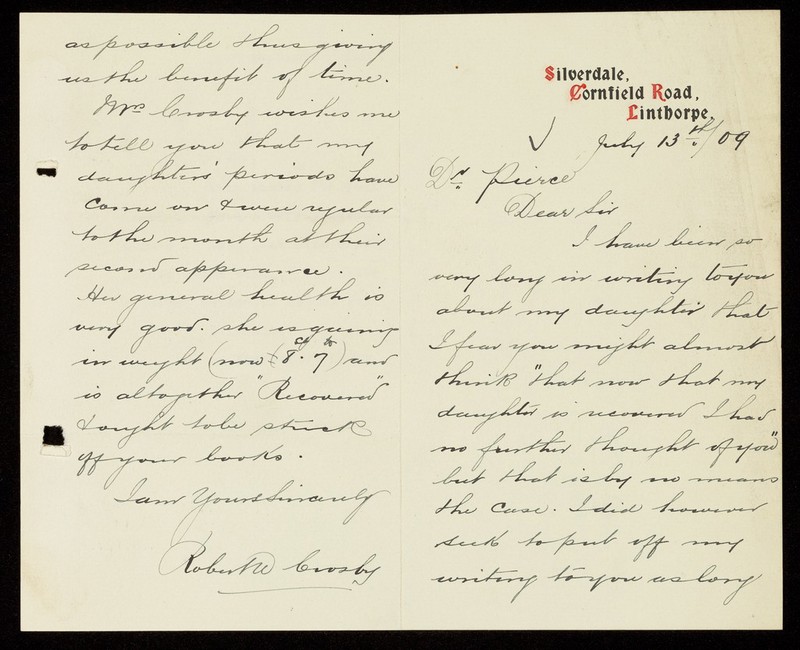 Silverdale,
Cornfield Road,
Linthorpe.
July 13th/09
Dr Pierce
Dear Sir
I have been so
very long in writing to you
about my daughter that
I fear you might almost
think "that now that my
daughter is recovered I had
no further thought of you"
but that is by no means
the case. I did however
seek to put off my
writing to you as long
as possible thus giving
us the benefit of time.
Mrs Crosby wishes me
to tell you that my
daughters' periods have
come on & were regular
to the month at their
second apperance.
Her general health is
very good. she is gaining
in weight (now 8 . 7) and
is altogether "Recovered"
& ought to be struck
off your books.
I am Yours Sincerely
Robert Crosby